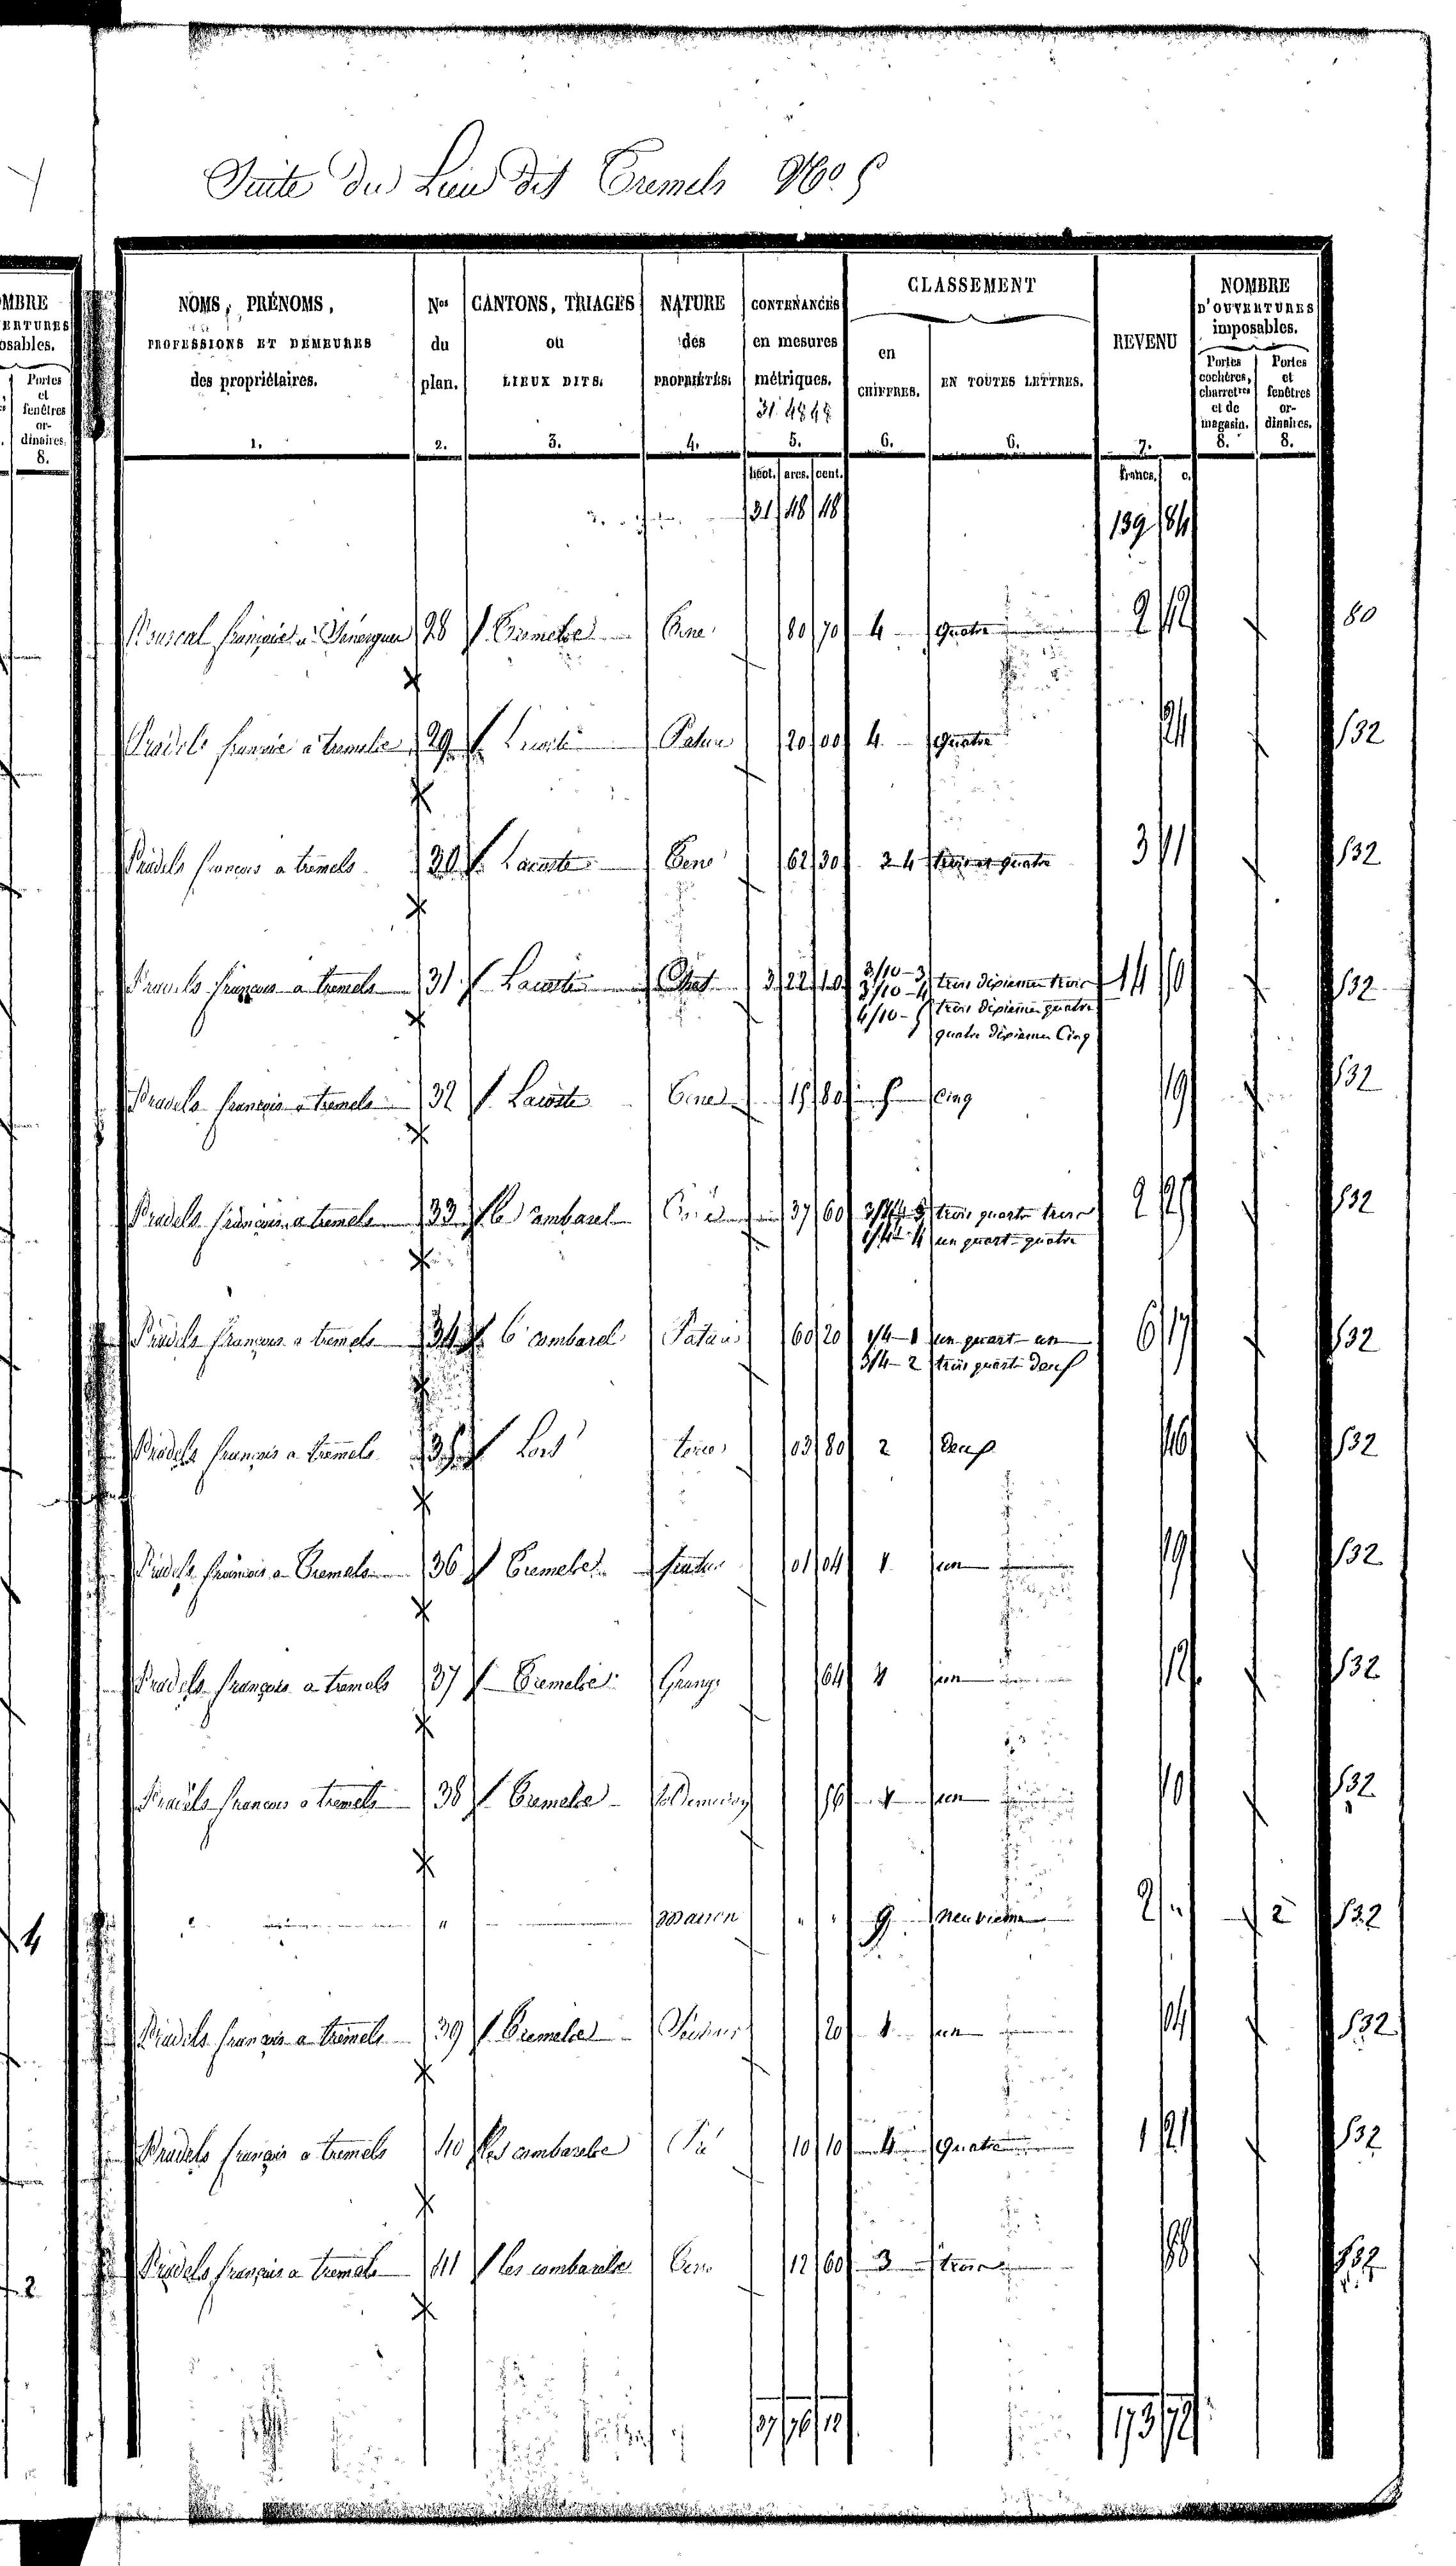 Suite du Lieu dit Tremels No. 5
MBRE
ERTURES
osables.
Portes
et
fenêtres
or-
dinaires.
8.
4
2
NOMS, PRÉNOMS,
PROFESSIONS ET DEMEURES
des propriétaires.
1.
Nos
du
plan.
2.
CANTONS, TRIAGES
ou
LIEUX DITS.
3.
NATURE
des
PROPRIÉTÉS.
4.
CONTENANCES
en mesures
métriques.
31 48 48
5.
CLASSEMENT
en
CHIFFRES.
6.
EN TOUTES LETTRES.
6.
REVENU
7.
NOMBRE
D'OUVERTURES
imposables.
Portes
cochères,
charretres
et de
magasin.
8.
Portes
et
fenêtres
or-
dinaires.
8.
hect. ares. cent. francs. c.
31 48 48 139 84
françois a 28 Tremels 80 70 4 quatre 2 42 80
Pradels françois a tremels 29 Pature 20 00 4 quatre 24 532
Pradels françois a tremels 30 Lacoste 62 30 3 4 trois et quatre 3 11 532
Pradels françois a tremels 31 Lacoste 3 22 10 3/10-3 trois dixiemes trois 14 50 532
3/10-4 trois dixiemes quatre
4/10-5 quatre dixiemes Cinq
Pradels françois a tremels 32 Lacoste 15 80 5 Cinq 19 532
Pradels françois a tremels 33 37 60 3/4-3 trois quarts trois 2 25 532
1/4-4 un quart quatre
Pradels françois a tremels 34 Pature 60 20 1/4-1 un quart un 6 17 532
3/4-2 trois quarts deux
Pradels françois a tremels 35 terre 03 80 2 deux 46 532
Pradels françois a Tremels 36 Tremels 01 04 1 un 19 532
Pradels françois a tremels 37 Tremels Grange 64 1 un 12 532
Pradels françois a tremels 38 Tremels 56 1 un 10 532
" " Maison " " 9 neuvieme 2 " 2 532
Pradels françois a tremels 39 Tremels 20 1 un 04 532
Pradels françois a tremels 40 les combarels 10 10 4 quatre 1 21 532
Pradels françois a tremels 41 les combarels 12 60 3 trois 88 532
37 76 12 173 72